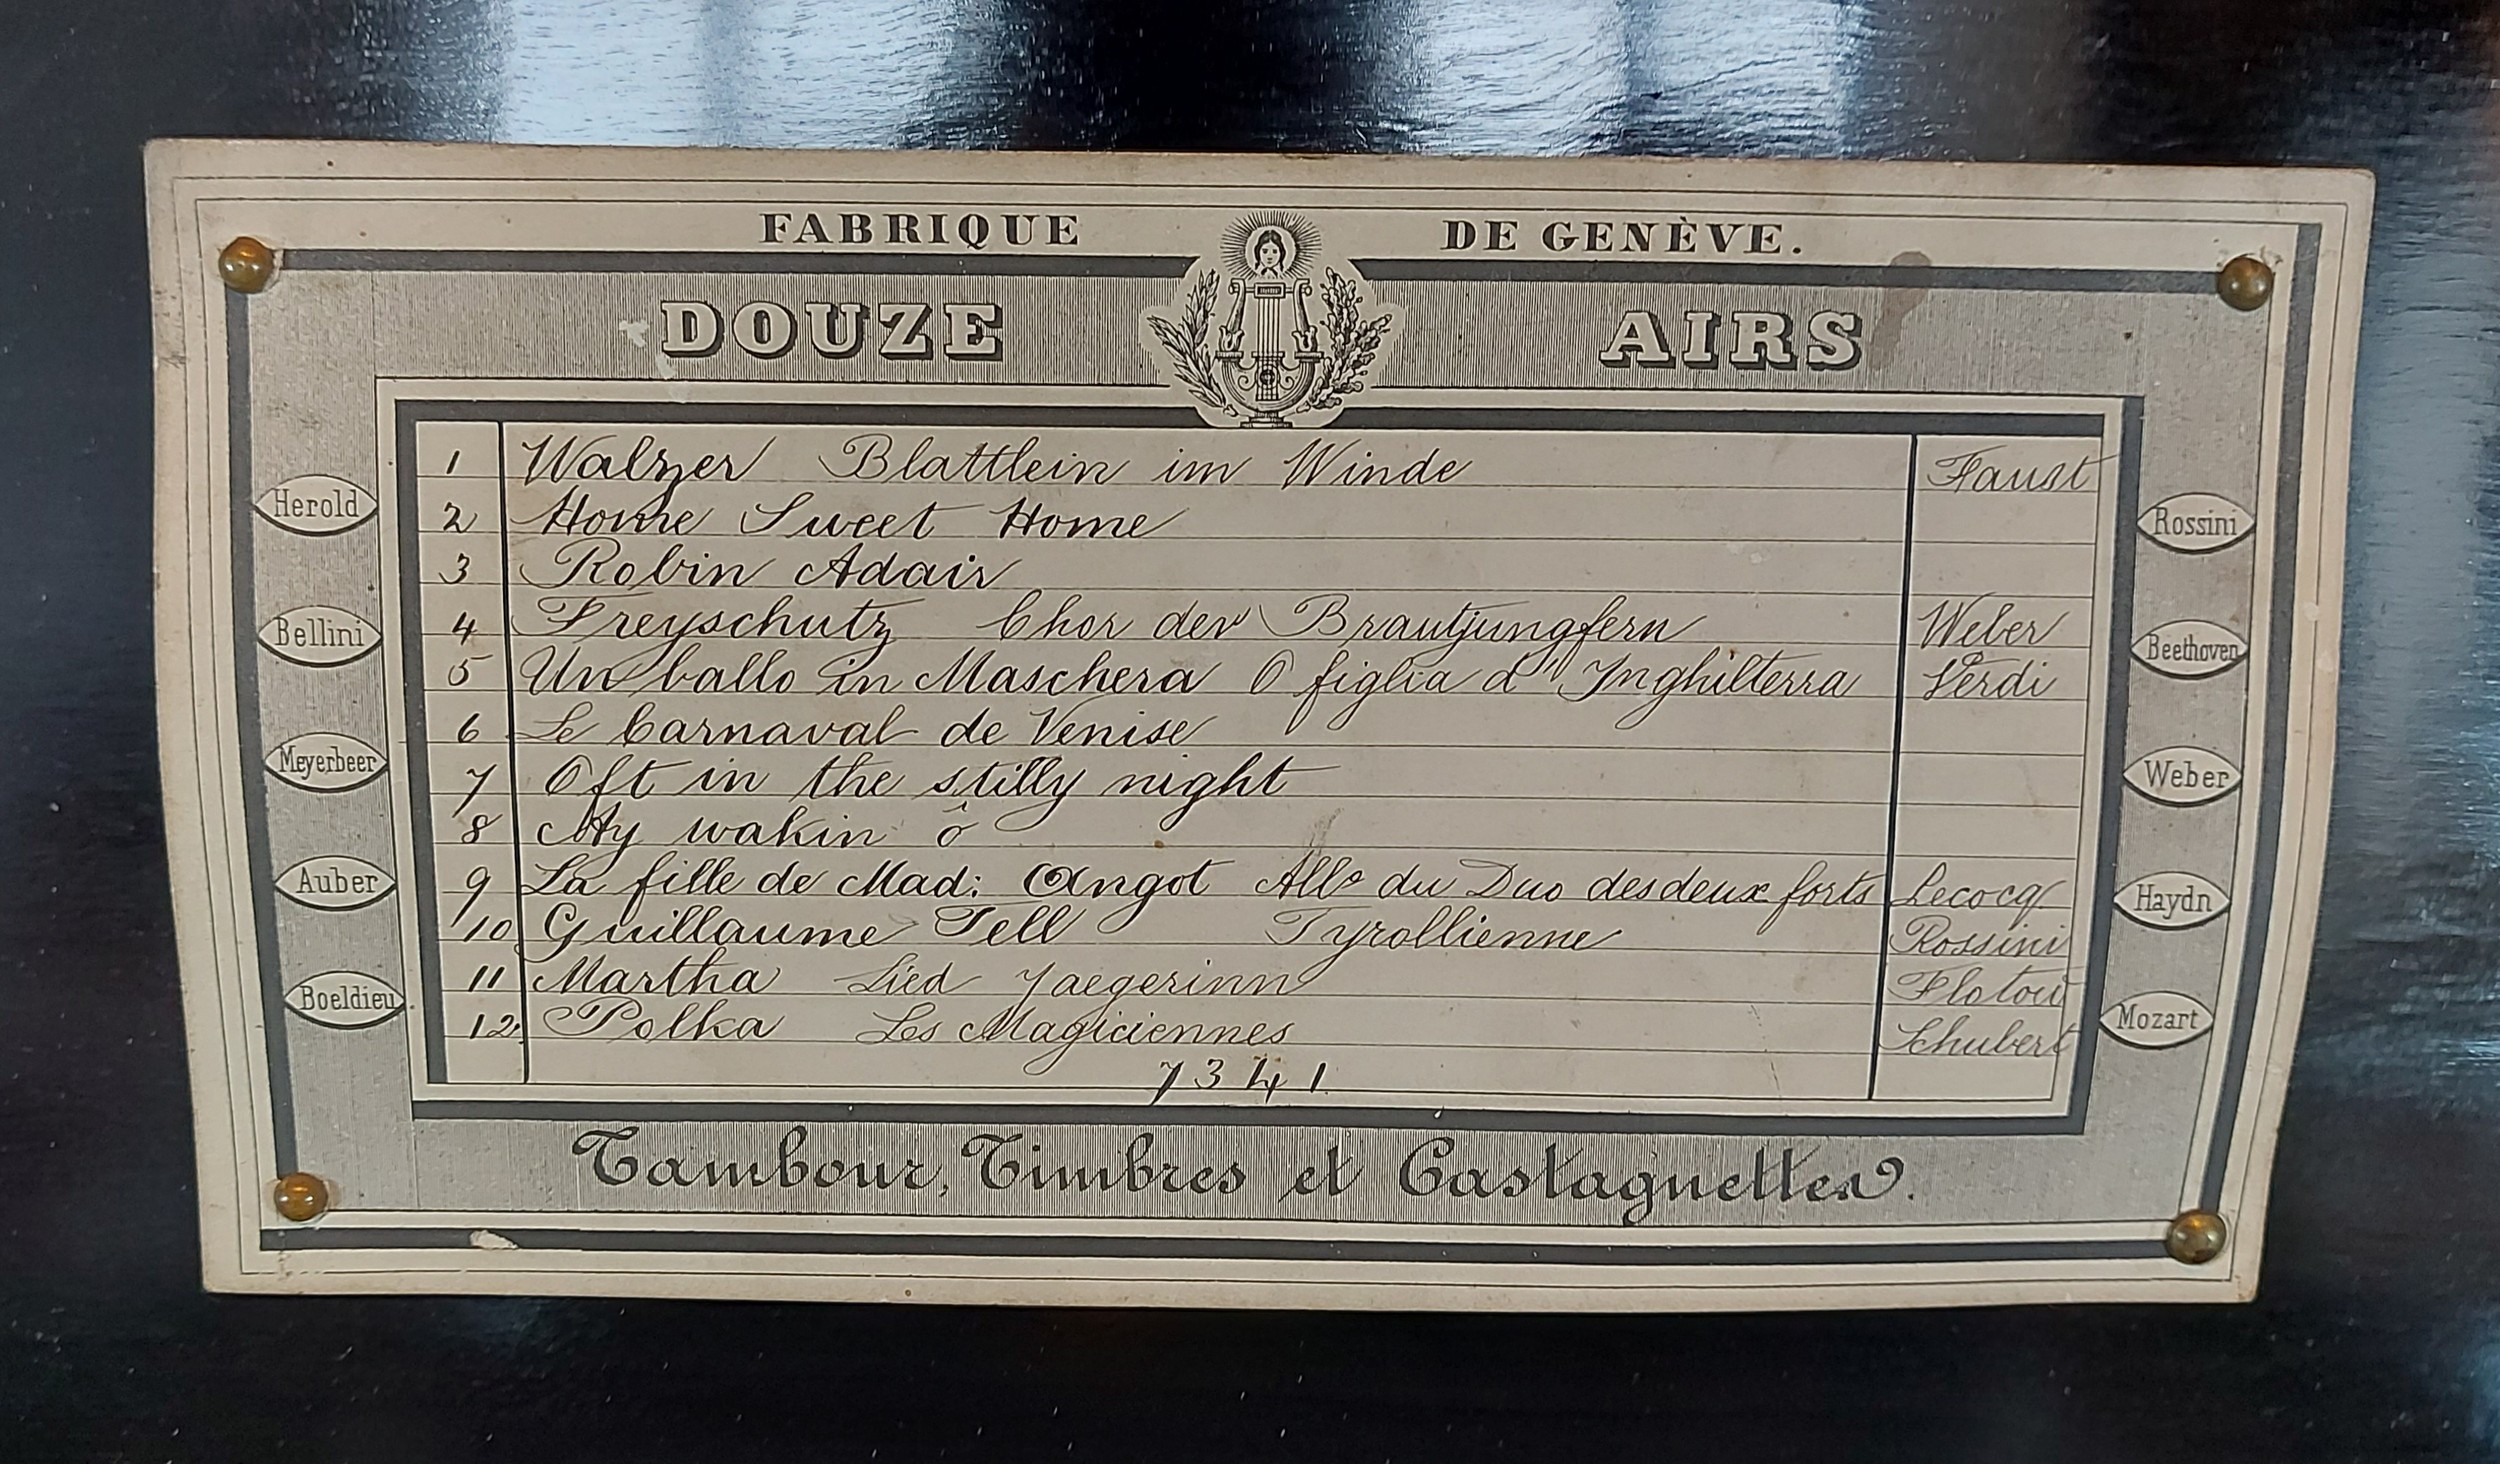 FABRIQUE DE GENÈVE.
DOUZE AIRS
1 Walzer Blattlein im Winde Faust
2 Home Sweet Home
3 Robin Adair
4 Freyschutz Chor der Brautjungfern Weber
5 Un ballo in Maschera O figlia d'Inghilterra Verdi
6 Le Carnaval de Venise
7 Oft in the stilly night
8 My wakin ô
9 La fille de Mad: Angot Allo du Duo des deux forts Lecocq
10 Guillaume Tell Tyrollienne Rossini
11 Martha Lied Jaegerinn Flotow
12. Polka Les Magiciennes Schubert
7341
Tambour, Timbres et Castagnettes.
Herold
Bellini
Meyerbeer
Auber
Boeldieu.
Rossini
Beethoven
Weber
Haydn
Mozart